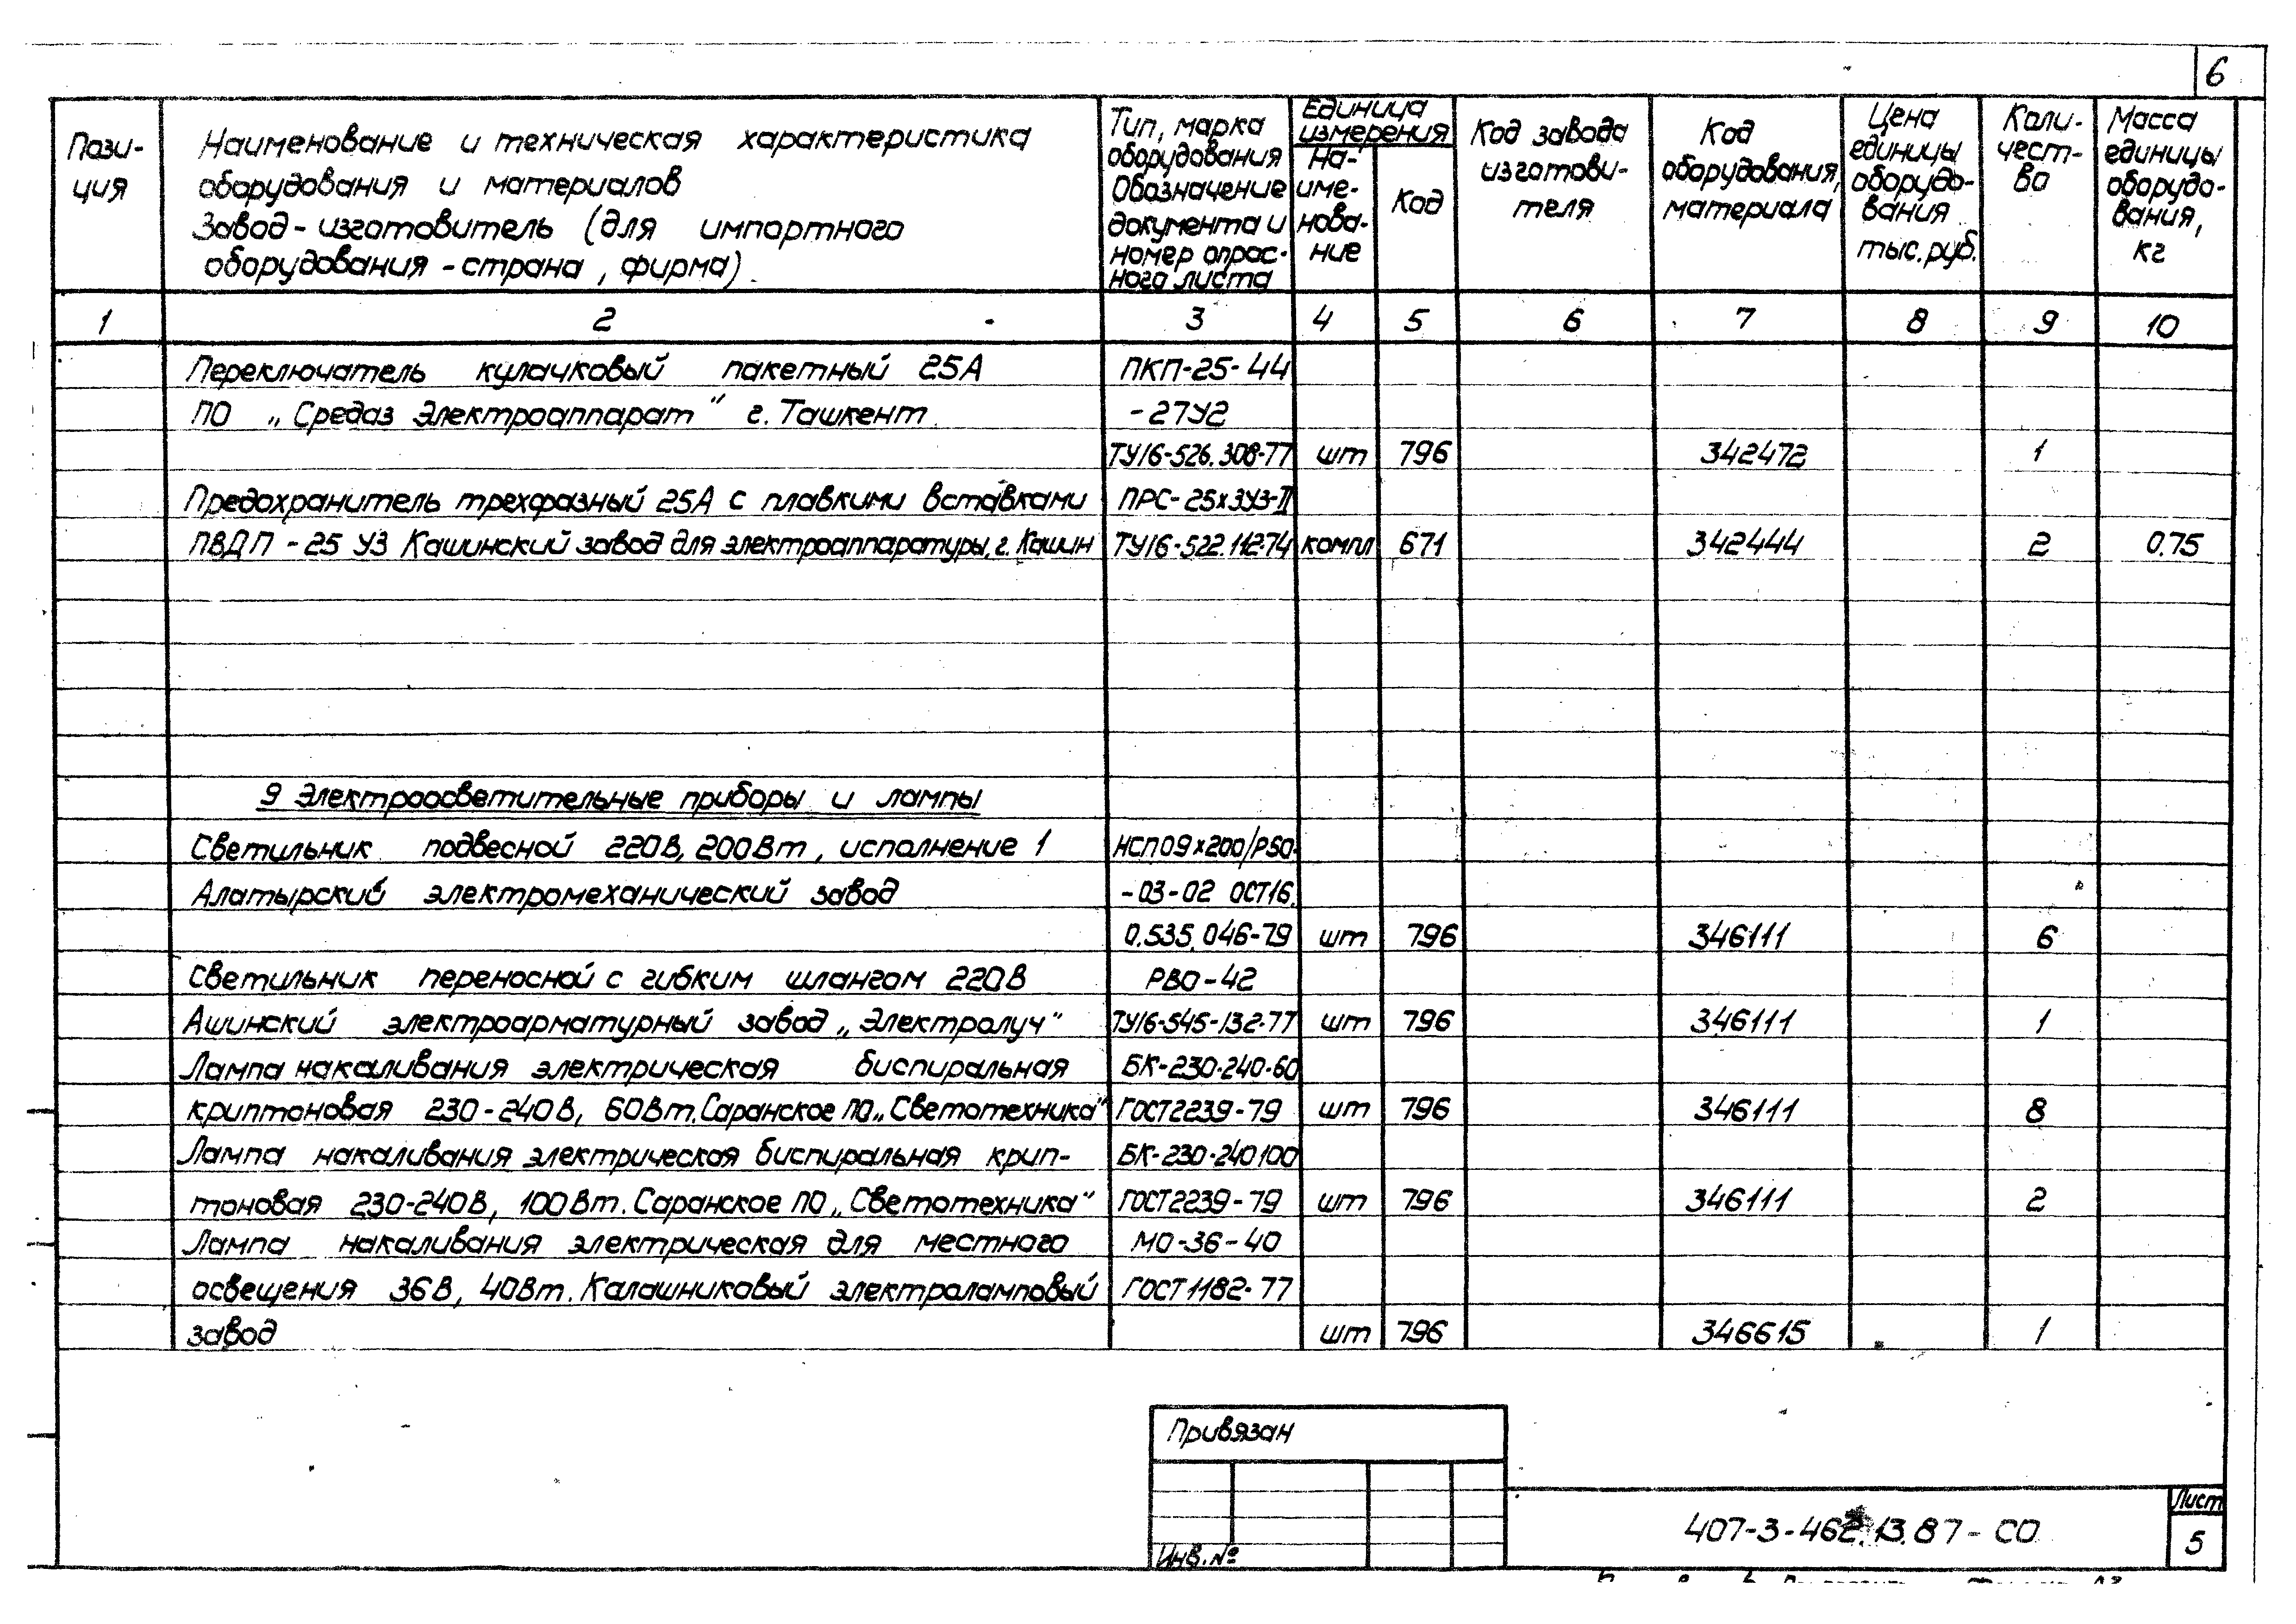 6
Пози-
ция
Наименование и техническая характеристика
оборудования и материалов
Завод-изготовитель (для импортного
оборудования - страна, фирма)
Тип, марка
оборудования
Обозначение
документа и
номер опрос-
ного листа
Единица
измерения
На-
име-
нова-
ние
Код
Код завода
изготови-
теля
Код
оборудования,
материала
Цена
единицы
оборудо-
вания
тыс. руб.
Коли-
чест-
во
Масса
единицы
оборудо-
вания,
кг
1 2 3 4 5 6 7 8 9 10
Переключатель кулачковый пакетный 25А ПКП-25-44
ПО „Средаз Электроаппарат" г. Ташкент -27У2
ТУ16-526.308-77 шт 796 342472 1
Предохранитель трехфазный 25А с плавкими вставками ПРС-25х3У3-II
ПВДП-25 У3 Кашинский завод для электроаппаратуры, г. Кашин ТУ16-522.112-74 компл 671 342444 2 0.75
9 Электроосветительные приборы и лампы
Светильник подвесной 220В, 200Вт, исполнение 1 НСП09х200/Р50-
Алатырский электромеханический завод -03-02 ОСТ16.
0.535.046-79 шт 796 346111 6
Светильник переносной с гибким шлангом 220В РВО-42
Ашинский электроарматурный завод „Электролуч" ТУ16-545-132-77 шт 796 346111 1
Лампа накаливания электрическая биспиральная БК-230-240-60
криптоновая 230-240В, 60Вт. Саранское ПО „Светотехника" ГОСТ2239-79 шт 796 346111 8
Лампа накаливания электрическая биспиральная крип- БК-230-240100
тоновая 230-240В, 100Вт. Саранское ПО „Светотехника" ГОСТ2239-79 шт 796 346111 2
Лампа накаливания электрическая для местного МО-36-40
освещения 36В, 40Вт. Калашниковый электроламповый ГОСТ1182-77
завод шт 796 346615 1
Привязан
Инв. №
407-3-462.13.87-СО
Лист
5